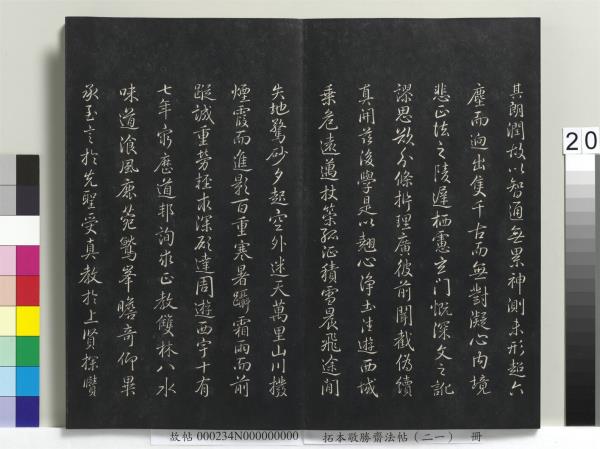 其朗潤故以知通無累神測未形超六
塵而迥出隻千古而無對凝心內境
悲正法之陵遲栖慮玄門慨深文之訛
謬思欲分條析理廣彼前聞截偽續
真開茲後學是以翹心淨土往遊西域
乘危遠邁杖策孤征積雪晨飛途間
失地驚砂夕起空外迷天萬里山川撥
煙霞而進影百重寒暑躡霜雨而前
蹤誠重勞輕求深願達周遊西宇十有
七年窮歷道邦詢求正教雙林八水
味道飡風鹿苑鷲峯瞻奇仰異
承至言於先聖受真教於上賢探賾
故帖 000234N000000000 拓本敬勝齋法帖（二一） 冊
20